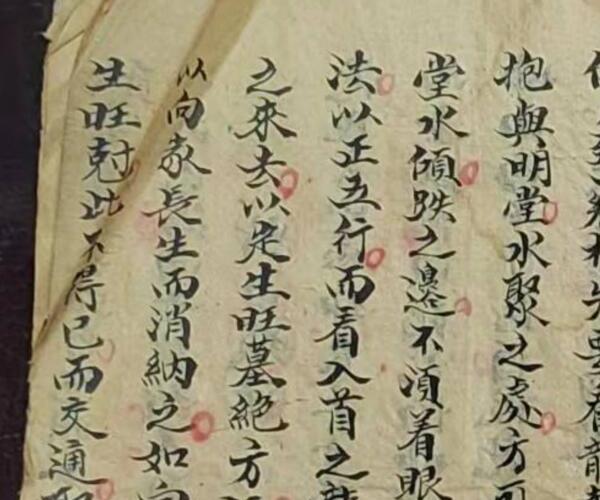 抱與明堂水聚之處方
堂水傾跌之邊不須着眼
法以正五行而看入首之
之來去以定生旺墓絶方
以向家長生而消納之如向
生旺尅此不得已而交通